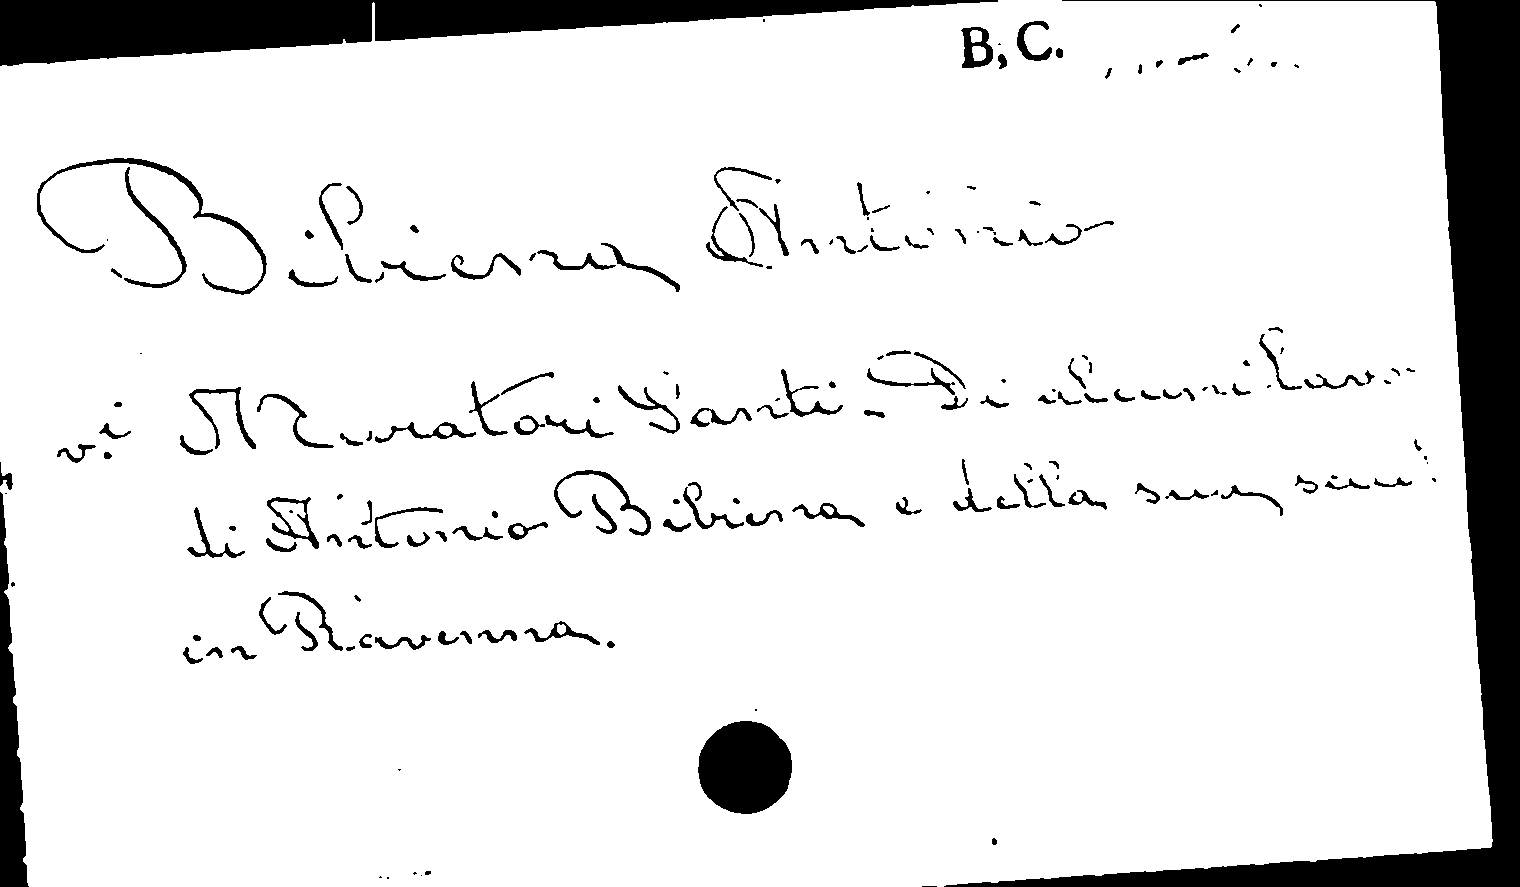 B. C.
Bibiena Antonio
v.i Muratori Santi - Di alcuni lavo
di Antonio Bibiena e della sua scu
in Ravenna.